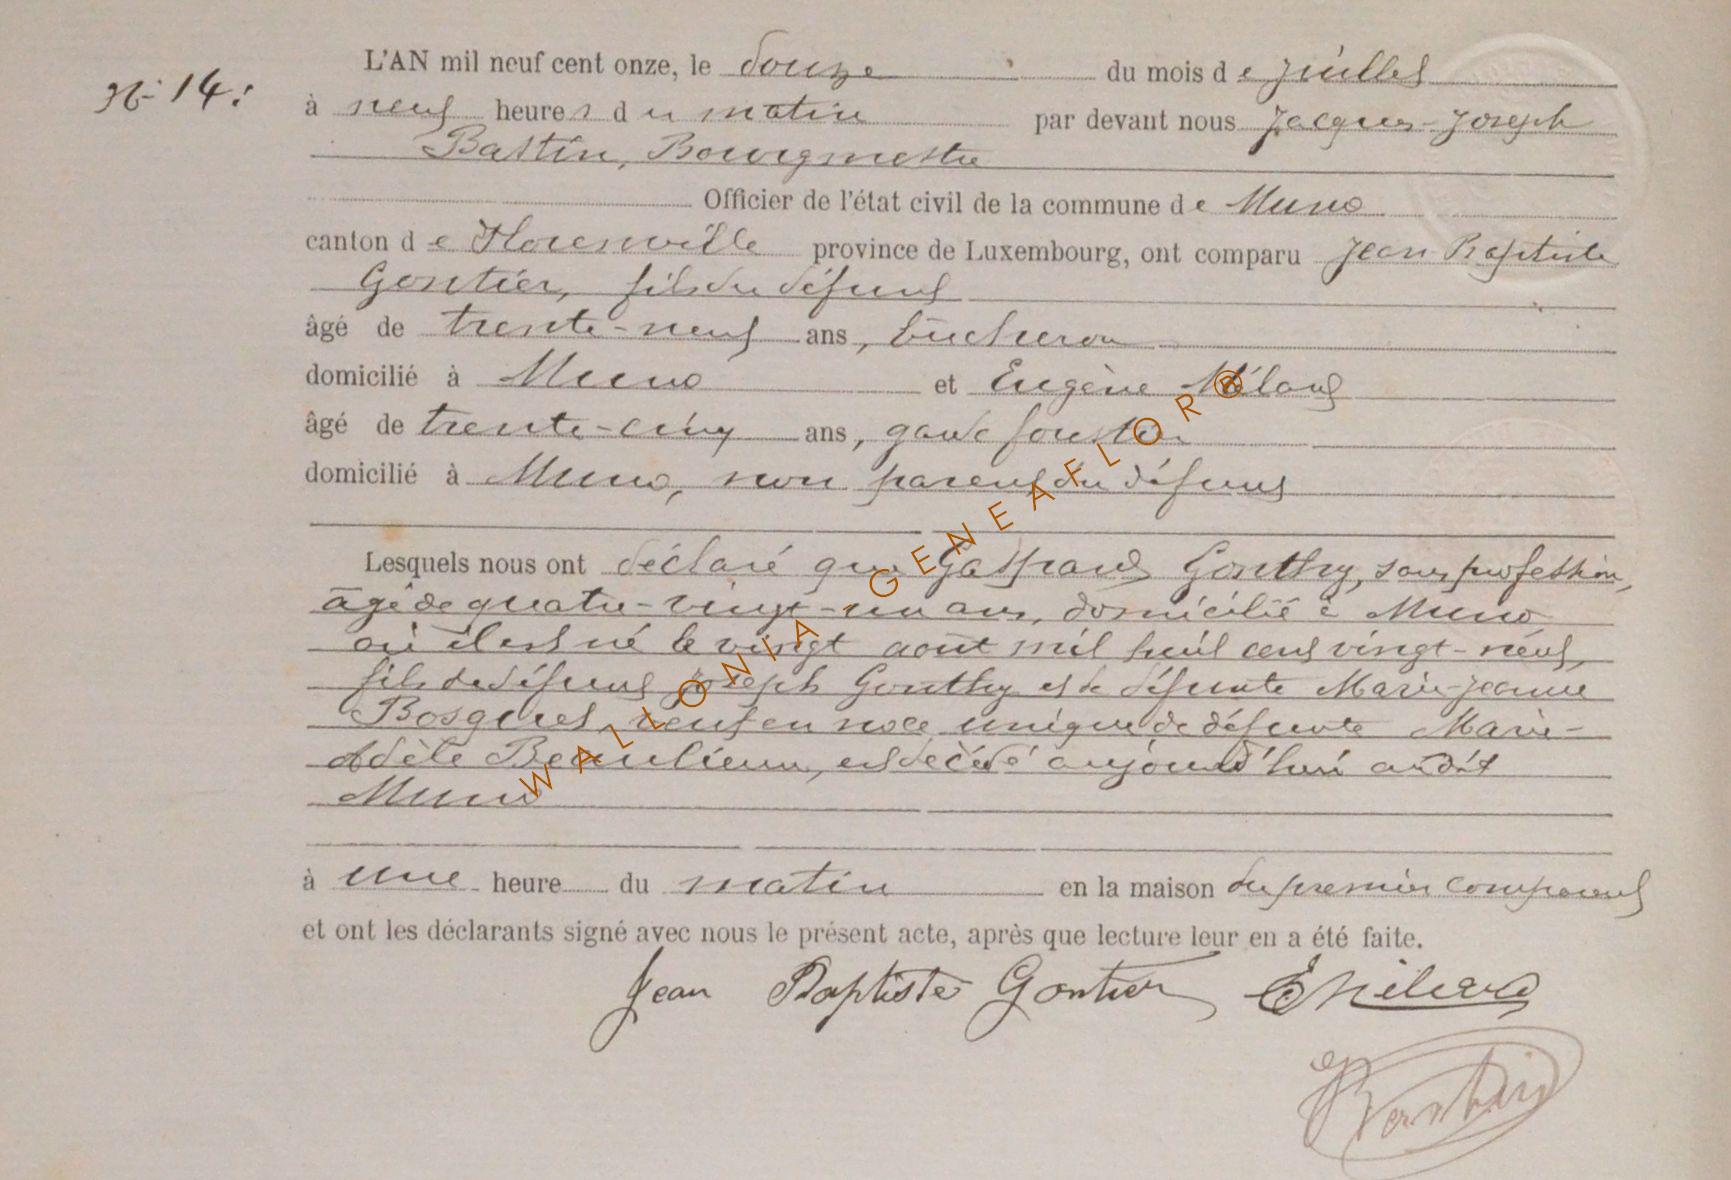 N° 14:
L'AN mil neuf cent onze, le douze du mois de juillet
à neuf heures du matin par devant nous Jacques-Joseph
Bastin, Bourgmestre
Officier de l'état civil de la commune de Muno
canton de Florenville province de Luxembourg, ont comparu Jean Baptiste
Gontier, fils du défunt
âgé de trente-neuf ans, bûcheron
domicilié à Muno et Eugène
âgé de trente-cinq ans, garde forestier
domicilié à Muno, non parent du défunt
Lesquels nous ont déclaré que Gaspard Gonthy, sans profession,
âgé de quatre-vingt-un ans, domicilié à Muno
où il est né le vingt août mil huit cent vingt-neuf,
fils de défunt Joseph Gonthy et de défunte Marie-Jeanne
Bosquet, veuf en noce unique de défunte Marie-
Adèle Beaulieu, est décédé aujourd'hui audit
Muno
à une heure du matin en la maison du premier comparant
et ont les déclarants signé avec nous le présent acte, après que lecture leur en a été faite.
Jean Baptiste Gontier
WALLONIA GENEAFLOR®